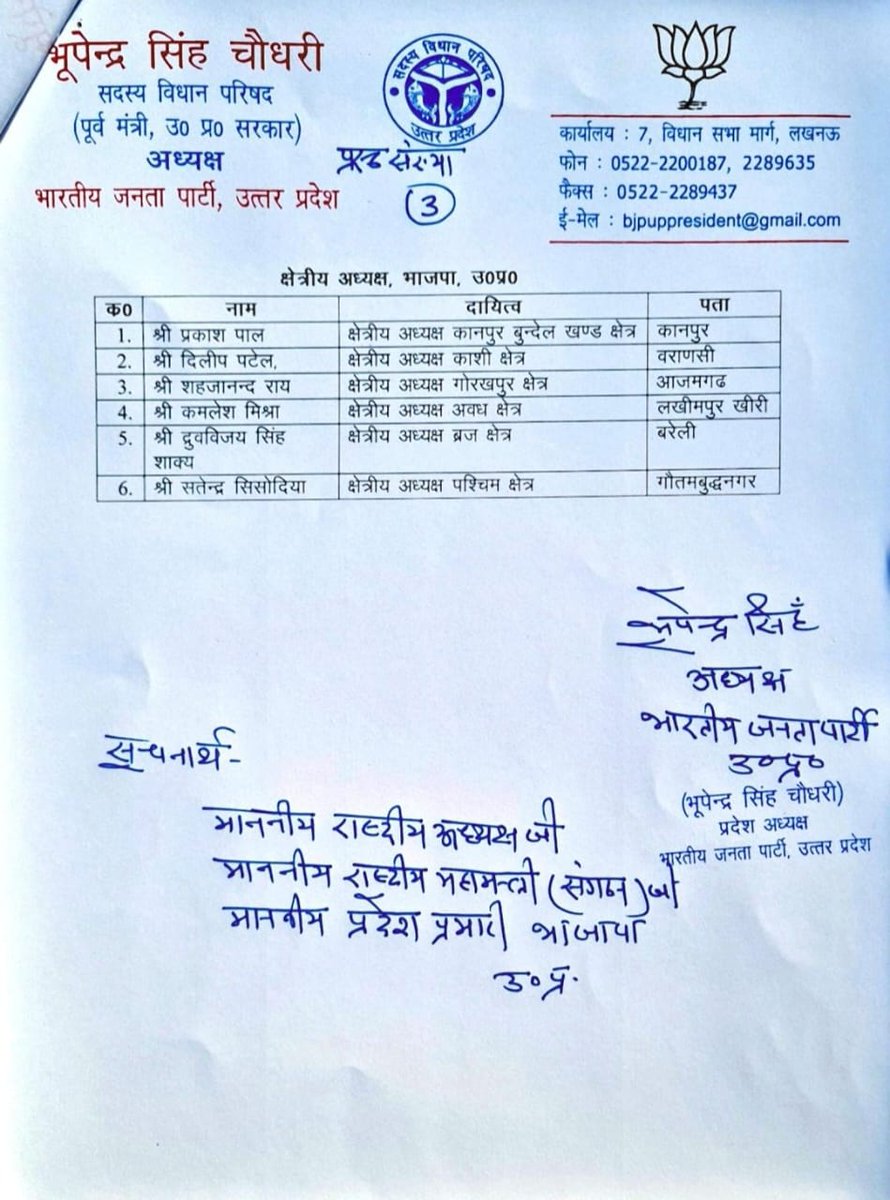 भूपेन्द्र सिंह चौधरी
सदस्य विधान परिषद
(पूर्व मंत्री, उ० प्र० सरकार)
अध्यक्ष
भारतीय जनता पार्टी, उत्तर प्रदेश
सदस्य विधान परिषद
उत्तर प्रदेश
संख्या
3
कार्यालय : 7, विधान सभा मार्ग, लखनऊ
फोन : 0522-2200187, 2289635
फैक्स : 0522-2289437
ई-मेल : bjpuppresident@gmail.com
क्षेत्रीय अध्यक्ष, भाजपा, उ०प्र०
क० नाम दायित्व पता
1. श्री प्रकाश पाल क्षेत्रीय अध्यक्ष कानपुर बुन्देल खण्ड क्षेत्र कानपुर
2. श्री दिलीप पटेल, क्षेत्रीय अध्यक्ष काशी क्षेत्र वराणसी
3. श्री शहजानन्द राय क्षेत्रीय अध्यक्ष गोरखपुर क्षेत्र आजमगढ
4. श्री कमलेश मिश्रा क्षेत्रीय अध्यक्ष अवध क्षेत्र लखीमपुर खीरी
5. श्री द्रुवविजय सिंह क्षेत्रीय अध्यक्ष ब्रज क्षेत्र बरेली
शाक्य
6. श्री सतेन्द्र सिसोदिया क्षेत्रीय अध्यक्ष पश्चिम क्षेत्र गौतमबुद्धनगर
भूपेन्द्र सिंह
अध्यक्ष
भारतीय जनता पार्टी
उ०प्र०
(भूपेन्द्र सिंह चौधरी)
प्रदेश अध्यक्ष
भारतीय जनता पार्टी, उत्तर प्रदेश
सूचनार्थ-
माननीय राष्ट्रीय अध्यक्ष जी
माननीय राष्ट्रीय महामन्त्री (संगठन) जी
माननीय प्रदेश प्रभारी भाजपा
उ०प्र.